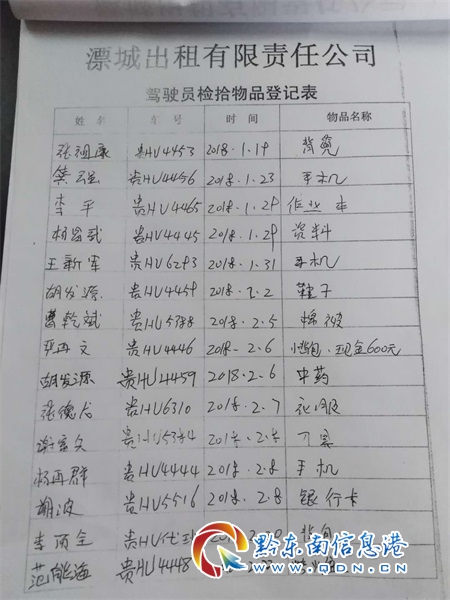 漂城出租有限责任公司
驾驶员检拾物品登记表
姓名 车号 时间 物品名称
张祖康 贵HU4453 2018.1.19 背篼
龚 贵HU4456 2018.1.23 手机
李平 贵HU4465 2018.1.29 作业本
杨昌武 贵HU4445 2018.1.29 资料
王新军 贵HU6293 2018.1.31 手机
胡发源 贵HU4459 2018.2.2 鞋子
曹乾斌 贵HU5788 2018.2.5 棉被
再文 贵HU4446 2018.2.6 现金600元
胡发源 贵HU4459 2018.2.6 中药
张德 贵HU6310 2018.2.7 衣服
谢 2018.2.8
杨再群 贵HU4444 2018.2.8 手机
胡波 贵HU5516 2018.2.8 银行卡
李 贵HU
范能海 贵HU4448
黔东南信息港
www.QDN.cn